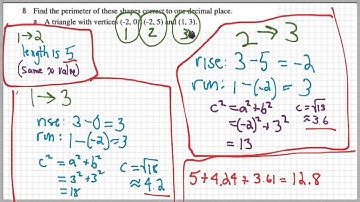 8 Find the perimeter of these shapes correct to one decimal place.
a. A triangle with vertices (-2, 0), (-2, 5) and (1, 3).
1 2 3
1→2
length is 5
(same x value)
1→3
rise: 3-0=3
run: 1-(-2)=3
c²=a²+b²
=3²+3²
=18
c=√18
≈4.2
2→3
rise: 3-5=-2
run: 1-(-2)=3
c²=a²+b²
=(-2)²+3²
=13
c=√13
≈3.6
5+4.24+3.61=12.8